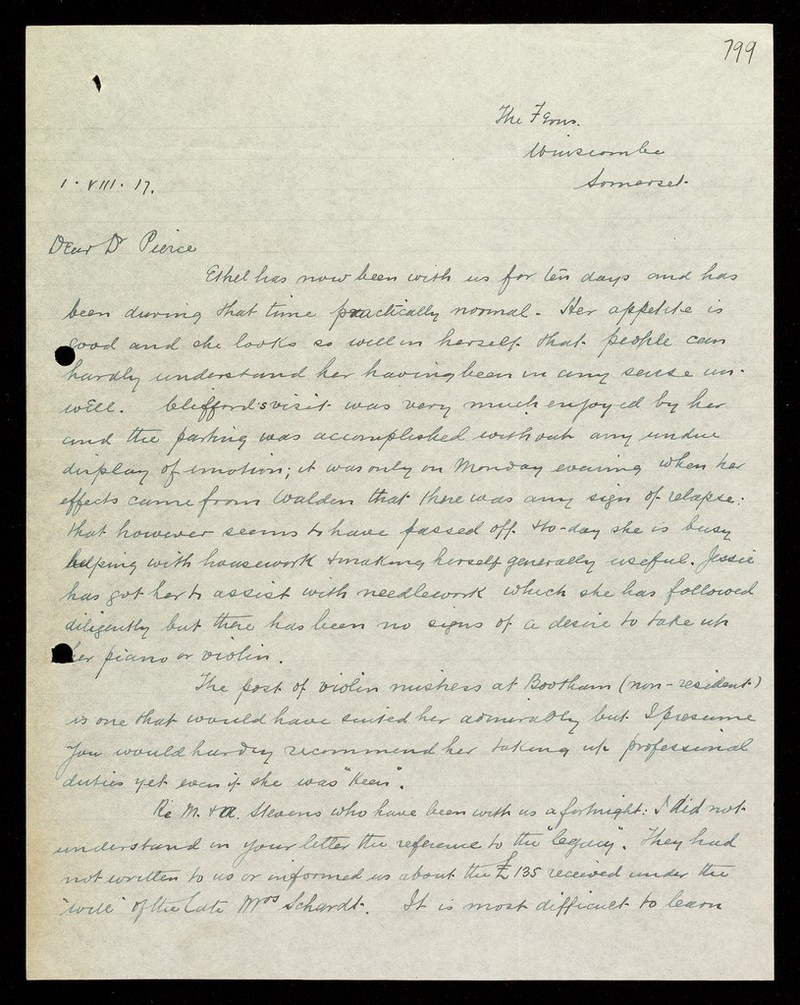 799
The Ferns.
Winscombe
Somerset.
1. VIII. 17.
Dear Dr Pierce
Ethel has now been with us for ten days and has
been during that time practically normal. Her appetite is
good and she looks so well in herself that people can
hardly understand her having been in any sense un-
well. Clifford's visit was very much enjoyed by her
and the parting was accomplished without any undue
display of emotion; it was only on Monday evening when her
effects came from Walden that there was any sign of relapse:
that however seems to have passed off & to-day she is busy
helping with housework & making herself generally useful. Jessie
has got her to assist with needlework which she has followed
diligently but there has been no signs of a desire to take up
her piano or violin.
The post of violin mistress at Bootham (non-resident)
is one that would have suited her admirably but I presume
you would hardly recommend her taking up professional
duties yet even if she was "keen".
Re M. & A. Stevens who have been with us a fortnight: I did not
understand in your letter the reference to the "legacy". They had
not written to us or informed us about the £135 received under the
"will" of the late Mrs Schardt. It is most difficult to learn